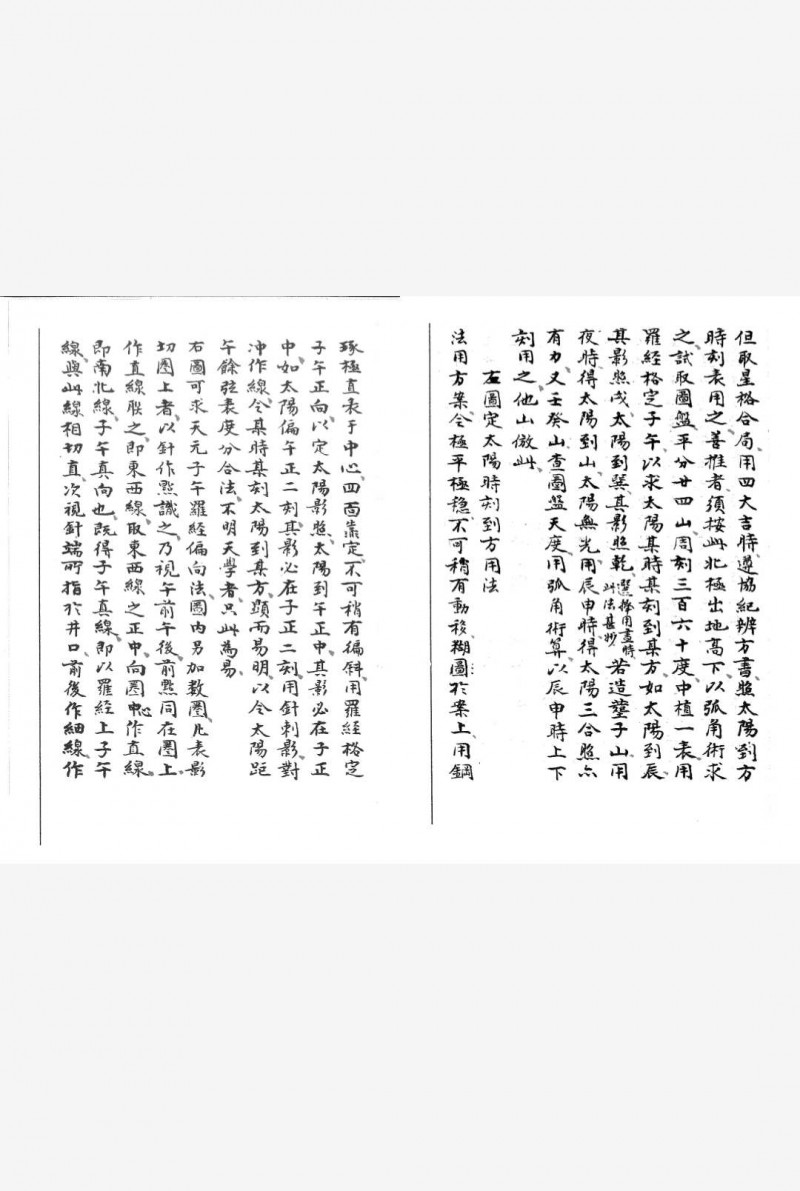 但取星格合局、用四大吉時、遵協紀辨方書、照太陽到方
時刻表用之、善推者、須按此北極出地高下、以弧角術求
之、試取圖盤平分廿四山、周刻三百六十度、中植一表、用
羅經格定子午、以求太陽某時某刻到某方、如太陽到辰、
其影照戌、太陽到巽、其影照乾、選擇用晝時、此法甚妙若造塟子山、用
夜時得太陽到山、太陽無光、用辰申時、得太陽三合照、亦
有力、又壬癸山、查圖盤天度、用弧角術算、以辰申時上下
刻用之、他山倣此、
左圖定太陽時刻到方用法
法用方案、令極平極穩、不可稍有動移、糊圖於案上、用鋼
琢極直表于中心、四面凖定、不可稍有偏斜、用羅經格定
子午正向、以定太陽影照、太陽到午正中、其影必在子正
中、如太陽偏午正二刻、其影必在子正二刻、用針刺影、對
冲作線、令某時某刻太陽到某方、顯而易明、以令太陽距
午餘弦表度分合法、不明天學者、只此為易、
右圖可求天元子午羅經偏向、法圖內另加數圈、凡表影
切圈上者、以針作點識之、乃視午前午後前點同在圈上、
作直線聯之、即東西線、取東西線之正中、向圈中心作直線、
即南北線、子午真向也、既得子午真線、即以羅經上子午
線與此線相切直、次視針端所指於井口、前後作細線、作